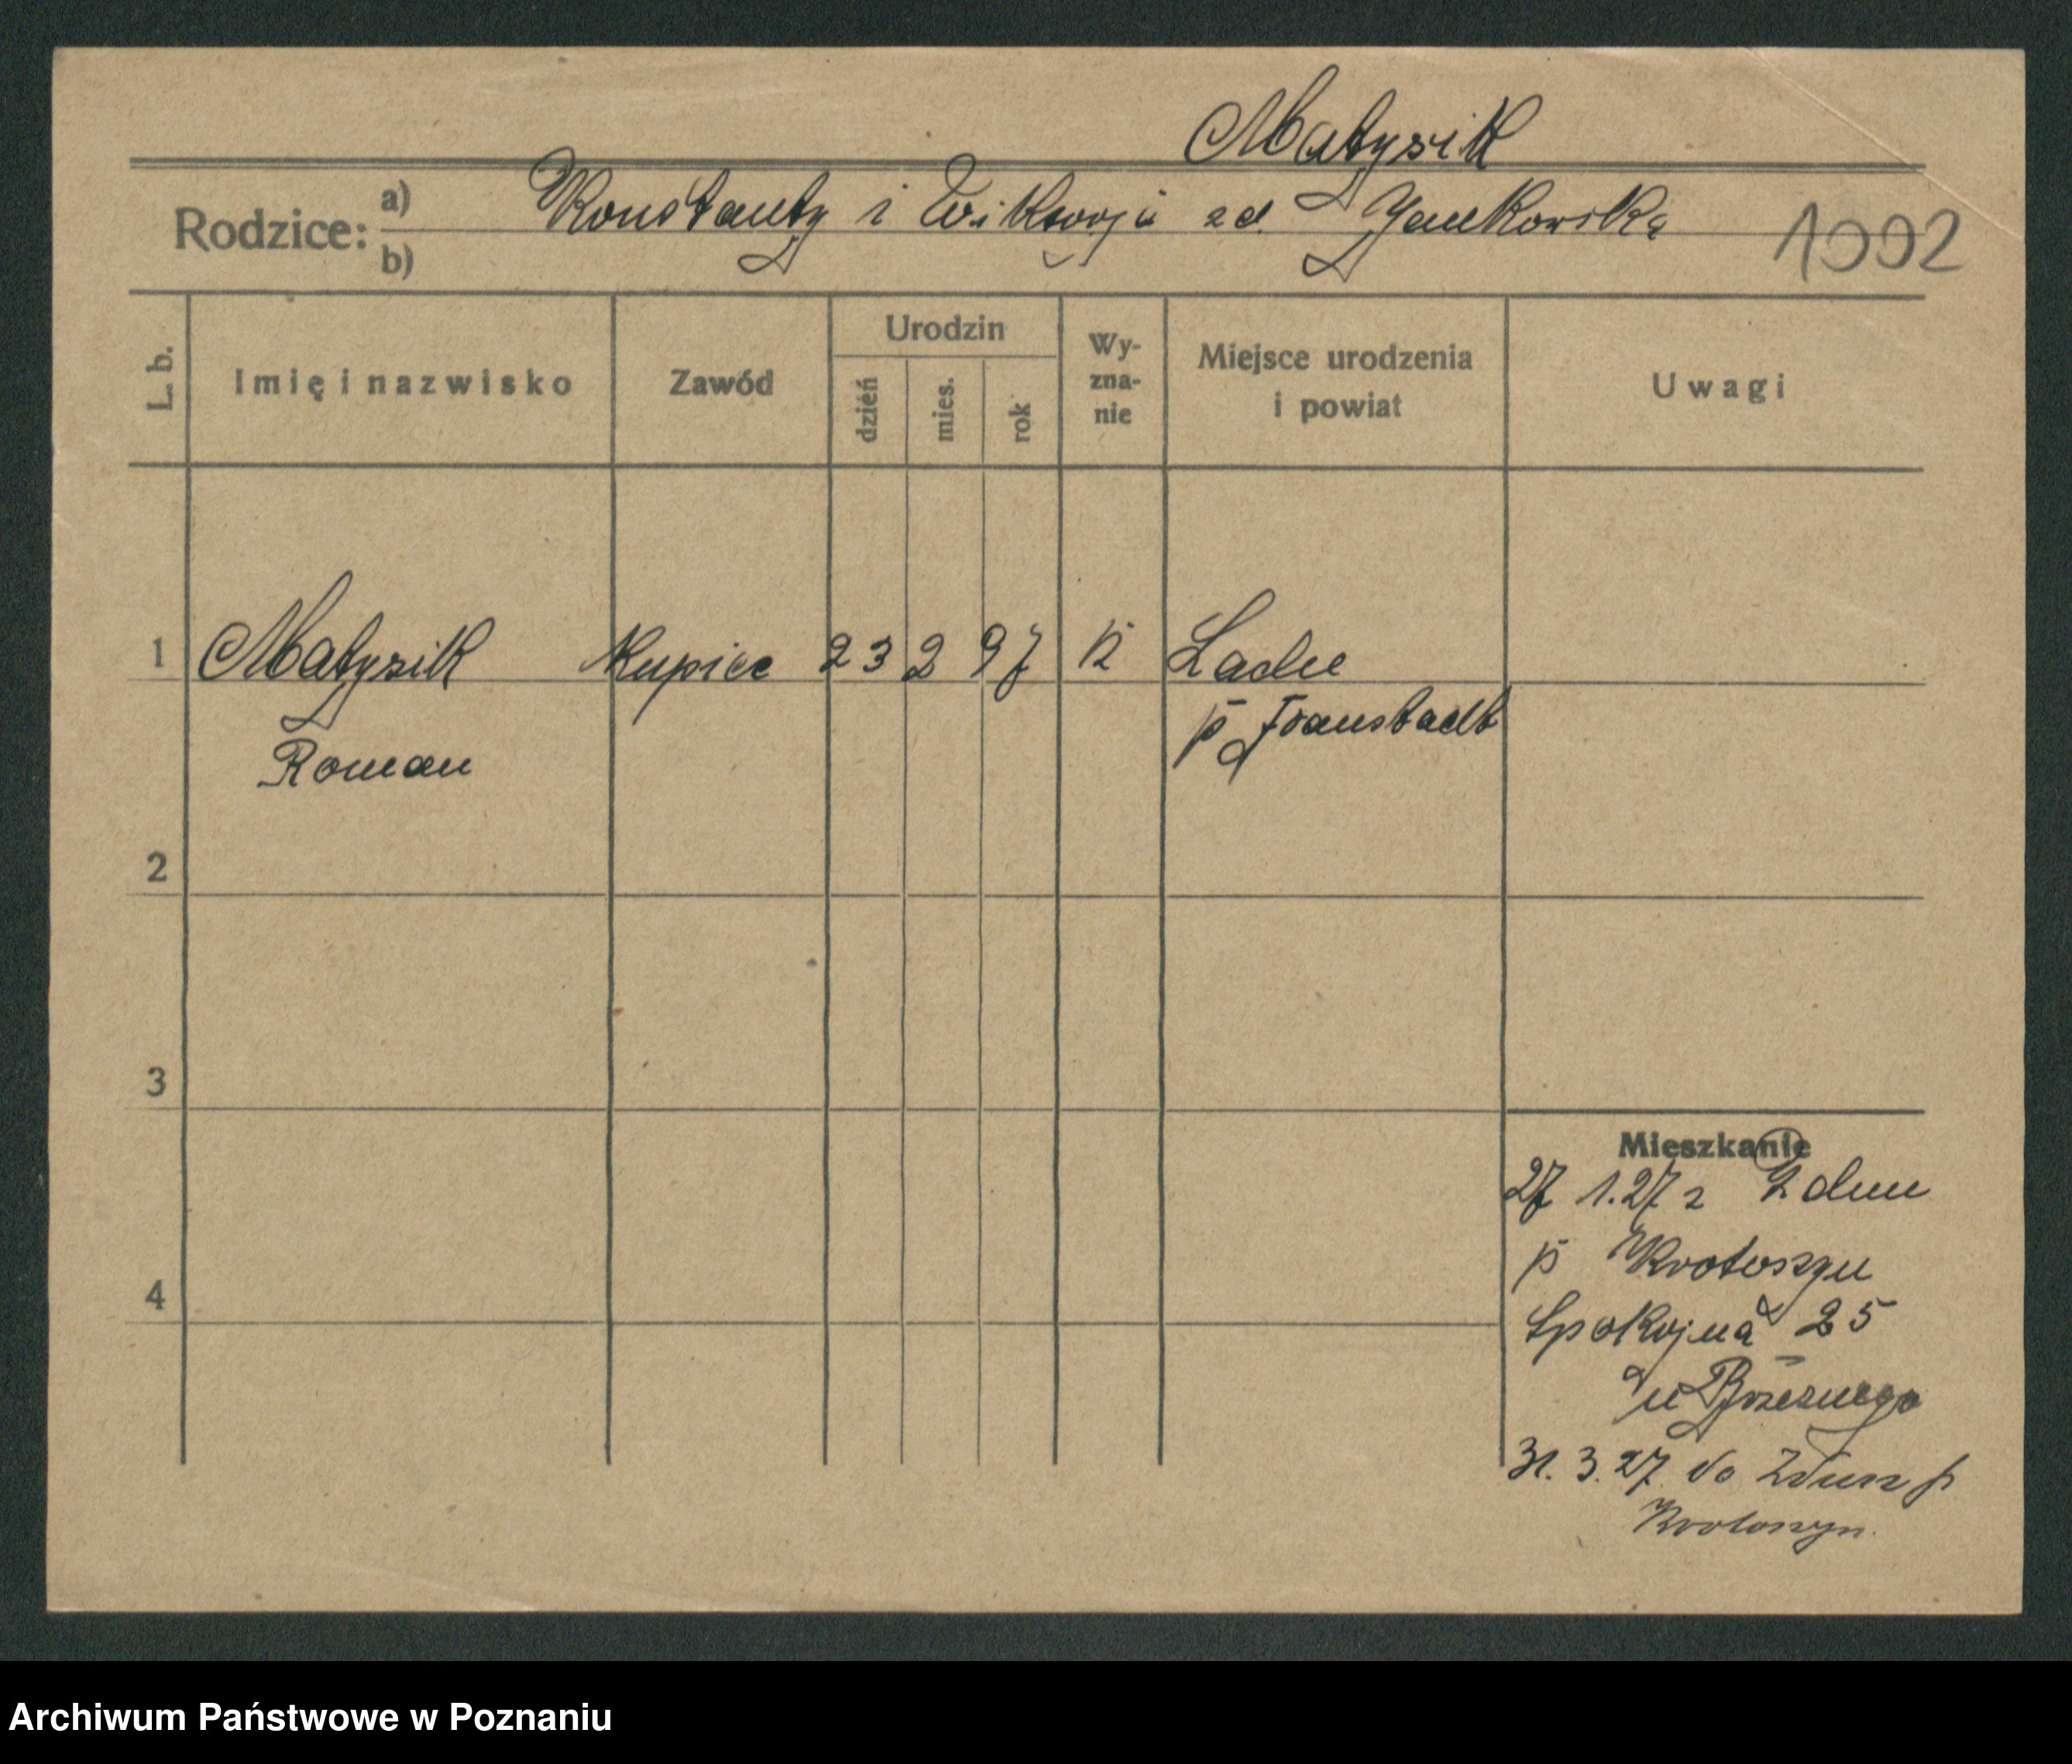 Matysik
Rodzice: a) b)
Konstanty i Wiktorja zd. Jankowska
1002
L. b.
Imię i nazwisko
Zawód
Urodzin
dzień mies. rok
Wy-
zna-
nie
Miejsce urodzenia
i powiat
Uwagi
1 Matysik Kupiec 23 2 97 k Lache
p Fraustadt
Roman
2
3
4
Mieszkanie
27 1.27 z Zdun
p Krotoszyn
Spokojna 25
u Brzeznego
31. 3. 27 do Zdun p
Krotoszyn.
Archiwum Państwowe w Poznaniu